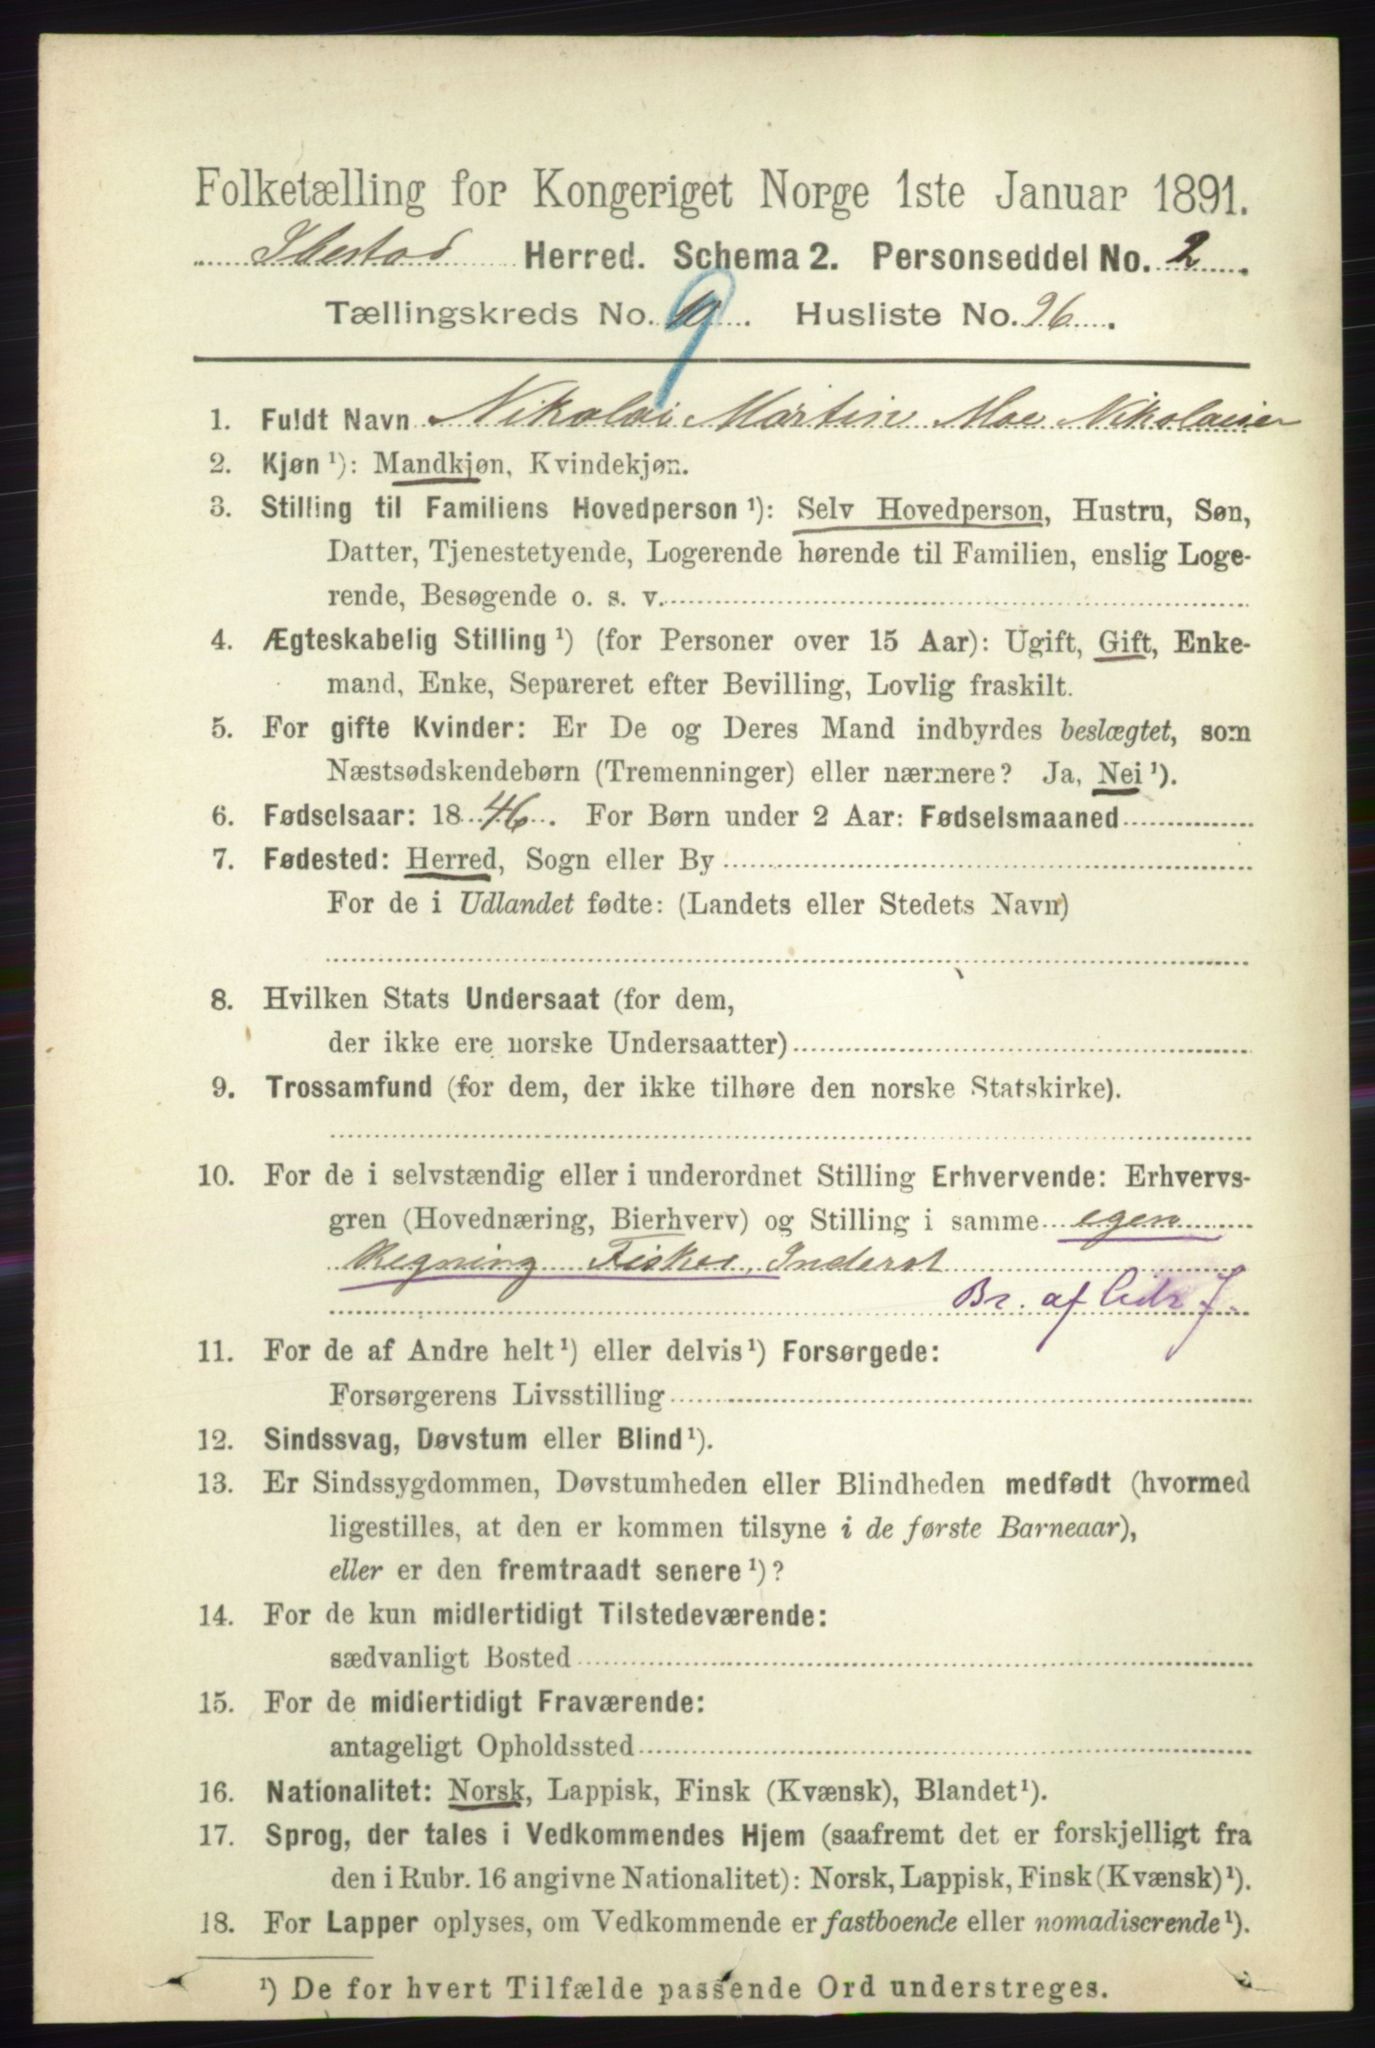 Folketælling for Kongeriget Norge 1ste Januar 1891.
Ibestad Herred. Schema 2. Personseddel No. 2.
Tællingskreds No. 9. Husliste No. 26.
1. Fuldt Navn Nikolai Martin Moe Nikolaisen
2. Kjøn ¹): Mandkjøn, Kvindekjøn.
3. Stilling til Familiens Hovedperson ¹): Selv Hovedperson, Hustru, Søn,
Datter, Tjenestetyende, Logerende hørende til Familien, enslig Loge-
rende, Besøgende o. s. v.
4. Ægteskabelig Stilling ¹) (for Personer over 15 Aar): Ugift, Gift, Enke-
mand, Enke, Separeret efter Bevilling, Lovlig fraskilt.
5. For gifte Kvinder: Er De og Deres Mand indbyrdes beslægtet, som
Næstsødskendebørn (Tremenninger) eller nærmere? Ja, Nei ¹).
6. Fødselsaar: 1846. For Børn under 2 Aar: Fødselsmaaned
7. Fødested: Herred, Sogn eller By
For de i Udlandet fødte: (Landets eller Stedets Navn)
8. Hvilken Stats Undersaat (for dem,
der ikke ere norske Undersaatter)
9. Trossamfund (for dem, der ikke tilhøre den norske Statskirke).
10. For de i selvstændig eller i underordnet Stilling Erhvervende: Erhvervs-
gren (Hovednæring, Bierhverv) og Stilling i samme egen
Regning Fisker, Inderst
Br. af
11. For de af Andre helt ¹) eller delvis ¹) Forsørgede:
Forsørgerens Livsstilling
12. Sindssvag, Døvstum eller Blind ¹).
13. Er Sindssygdommen, Døvstumheden eller Blindheden medfødt (hvormed
ligestilles, at den er kommen tilsyne i de første Barneaar),
eller er den fremtraadt senere ¹)?
14. For de kun midlertidigt Tilstedeværende:
sædvanligt Bosted
15. For de midlertidigt Fraværende:
antageligt Opholdssted
16. Nationalitet: Norsk, Lappisk, Finsk (Kvænsk), Blandet ¹).
17. Sprog, der tales i Vedkommendes Hjem (saafremt det er forskjelligt fra
den i Rubr. 16 angivne Nationalitet): Norsk, Lappisk, Finsk (Kvænsk) ¹).
18. For Lapper oplyses, om Vedkommende er fastboende eller nomadiserende ¹).
¹) De for hvert Tilfælde passende Ord understreges.